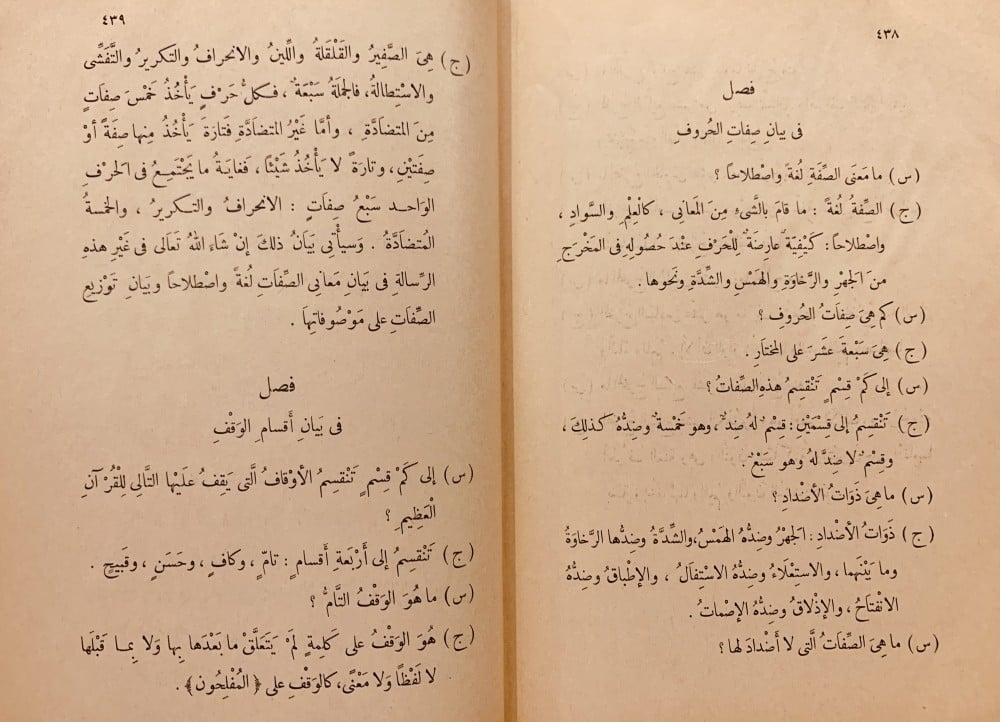 ٤٣٨
فصل
فى بيانِ صِفاتِ الحُروفِ
(س) ما مَعنَى الصِّفَةِ لغةً واصْطلاحاً ؟
(ج) الصِّفةُ لُغةً : ما قامَ بالشَّىءِ مِنَ المَعانِى ، كالعِلْمِ والسوادِ ،
واصْطلاحاً : كَيْفِيَّةٌ عارِضَةٌ لِلْحَرْفِ عِنْدَ حُصولِهِ فى المَخْرَجِ
منَ الجهْرِ والرَّخاوَةِ والهَمْسِ والشِّدَّةِ ونحوها .
(س) كم هِىَ صِفاتُ الحُروفِ ؟
(ج) هِىَ سَبْعَةَ عَشَرَ على المختارِ .
(س) إلى كَمْ قِسْمٍ تَنْقَسِمُ هذِهِ الصِّفاتُ ؟
(ج) تَنْقَسِمُ إلى قِسْمَيْنِ : قِسْمٌ لهُ ضِدٌّ ، وهو خَمْسَةٌ وضِدُّهُ كذلِكَ ،
وقسْمٌ لا ضِدَّ لهُ وهو سَبْعٌ .
(س) ما هِىَ ذَوَاتُ الأضْدادِ ؟
(ج) ذَوَاتُ الأضْدادِ : الجهْرُ وضِدُّهُ الهَمْسُ ، والشِّدَّةُ وضِدُّها الرَّخاوَةُ
وما بَيْنَهما ، والاستْعِلَاءُ وضِدُّهُ الاسْتِفَالُ ، والإطْباقُ وضِدُّهُ
الانْفتاحُ ، والإذْلاقُ وضِدُّهُ الإصْماتُ .
(س) ما هِىَ الصِّفَاتُ الَّتى لا أضْدادَ لها ؟
٤٣٩
(ج) هِىَ الصَّفِيرُ والقَلْقَلةُ واللِّينُ والانحرافُ والتكريرُ والتَّفَشِّى
والاسْتِطالةُ ، فالجملَةُ سَبْعَةٌ ، فكلُّ حَرْفٍ يَأْخُذُ خَمْسَ صِفاتٍ
مِنَ المتضادَّةِ ، وأمَّا غَيْرُ المتضادَّةِ فَتارَةً يَأْخُذُ مِنها صِفَةً أوْ
صِفَتَيْنِ ، وتارَةً لا يَأْخُذُ شَيْئًا ، فَغايَةُ ما يَجْتَمِعُ فى الحرْفِ
الوَاحدِ سَبْعُ صِفاتٍ : الانحرافُ والتكريرُ ، والخمْسَةُ
المُتضادَّةُ . وسَيأْتِى بَيانُ ذلكَ إنْ شَاءَ اللهُ تَعالَى فى غَيْرِ هذِهِ
الرِّسالةِ فى بيَانِ مَعانِى الصِّفاتِ لغةً واصْطلاحاً وبيانِ تَوْزِيعِ
الصِّفاتِ على مَوْصُوفاتِهاَ .
فصل
فى بَيانِ أقسامِ الوَقْفِ
(س) إلى كَمْ قِسْمٍ تَنْقَسِمُ الأوْقافُ الَّتى يَقِفُ عَلَيْها التَّالِى لِلْقُرْآنِ
العَظِيمِ ؟
(ج) تَنْقَسِمُ إلى أرْبَعَةِ أقسامٍ : تامٍّ ، وكافٍ ، وحَسَنٍ ، وقَبيحٍ .
(س) ما هُوَ الوَقْفُ التَّامُّ ؟
(ج) هُوَ الوَقْفُ على كَلِمةٍ لَمْ يَتَعَلَّقْ ما بَعْدَها بِها وَلا بِما قَبْلَها
لا لَفْظًا وَلا مَعْنًى ، كالوَقْفِ على ﴿ المُفْلِحُون ﴾ .